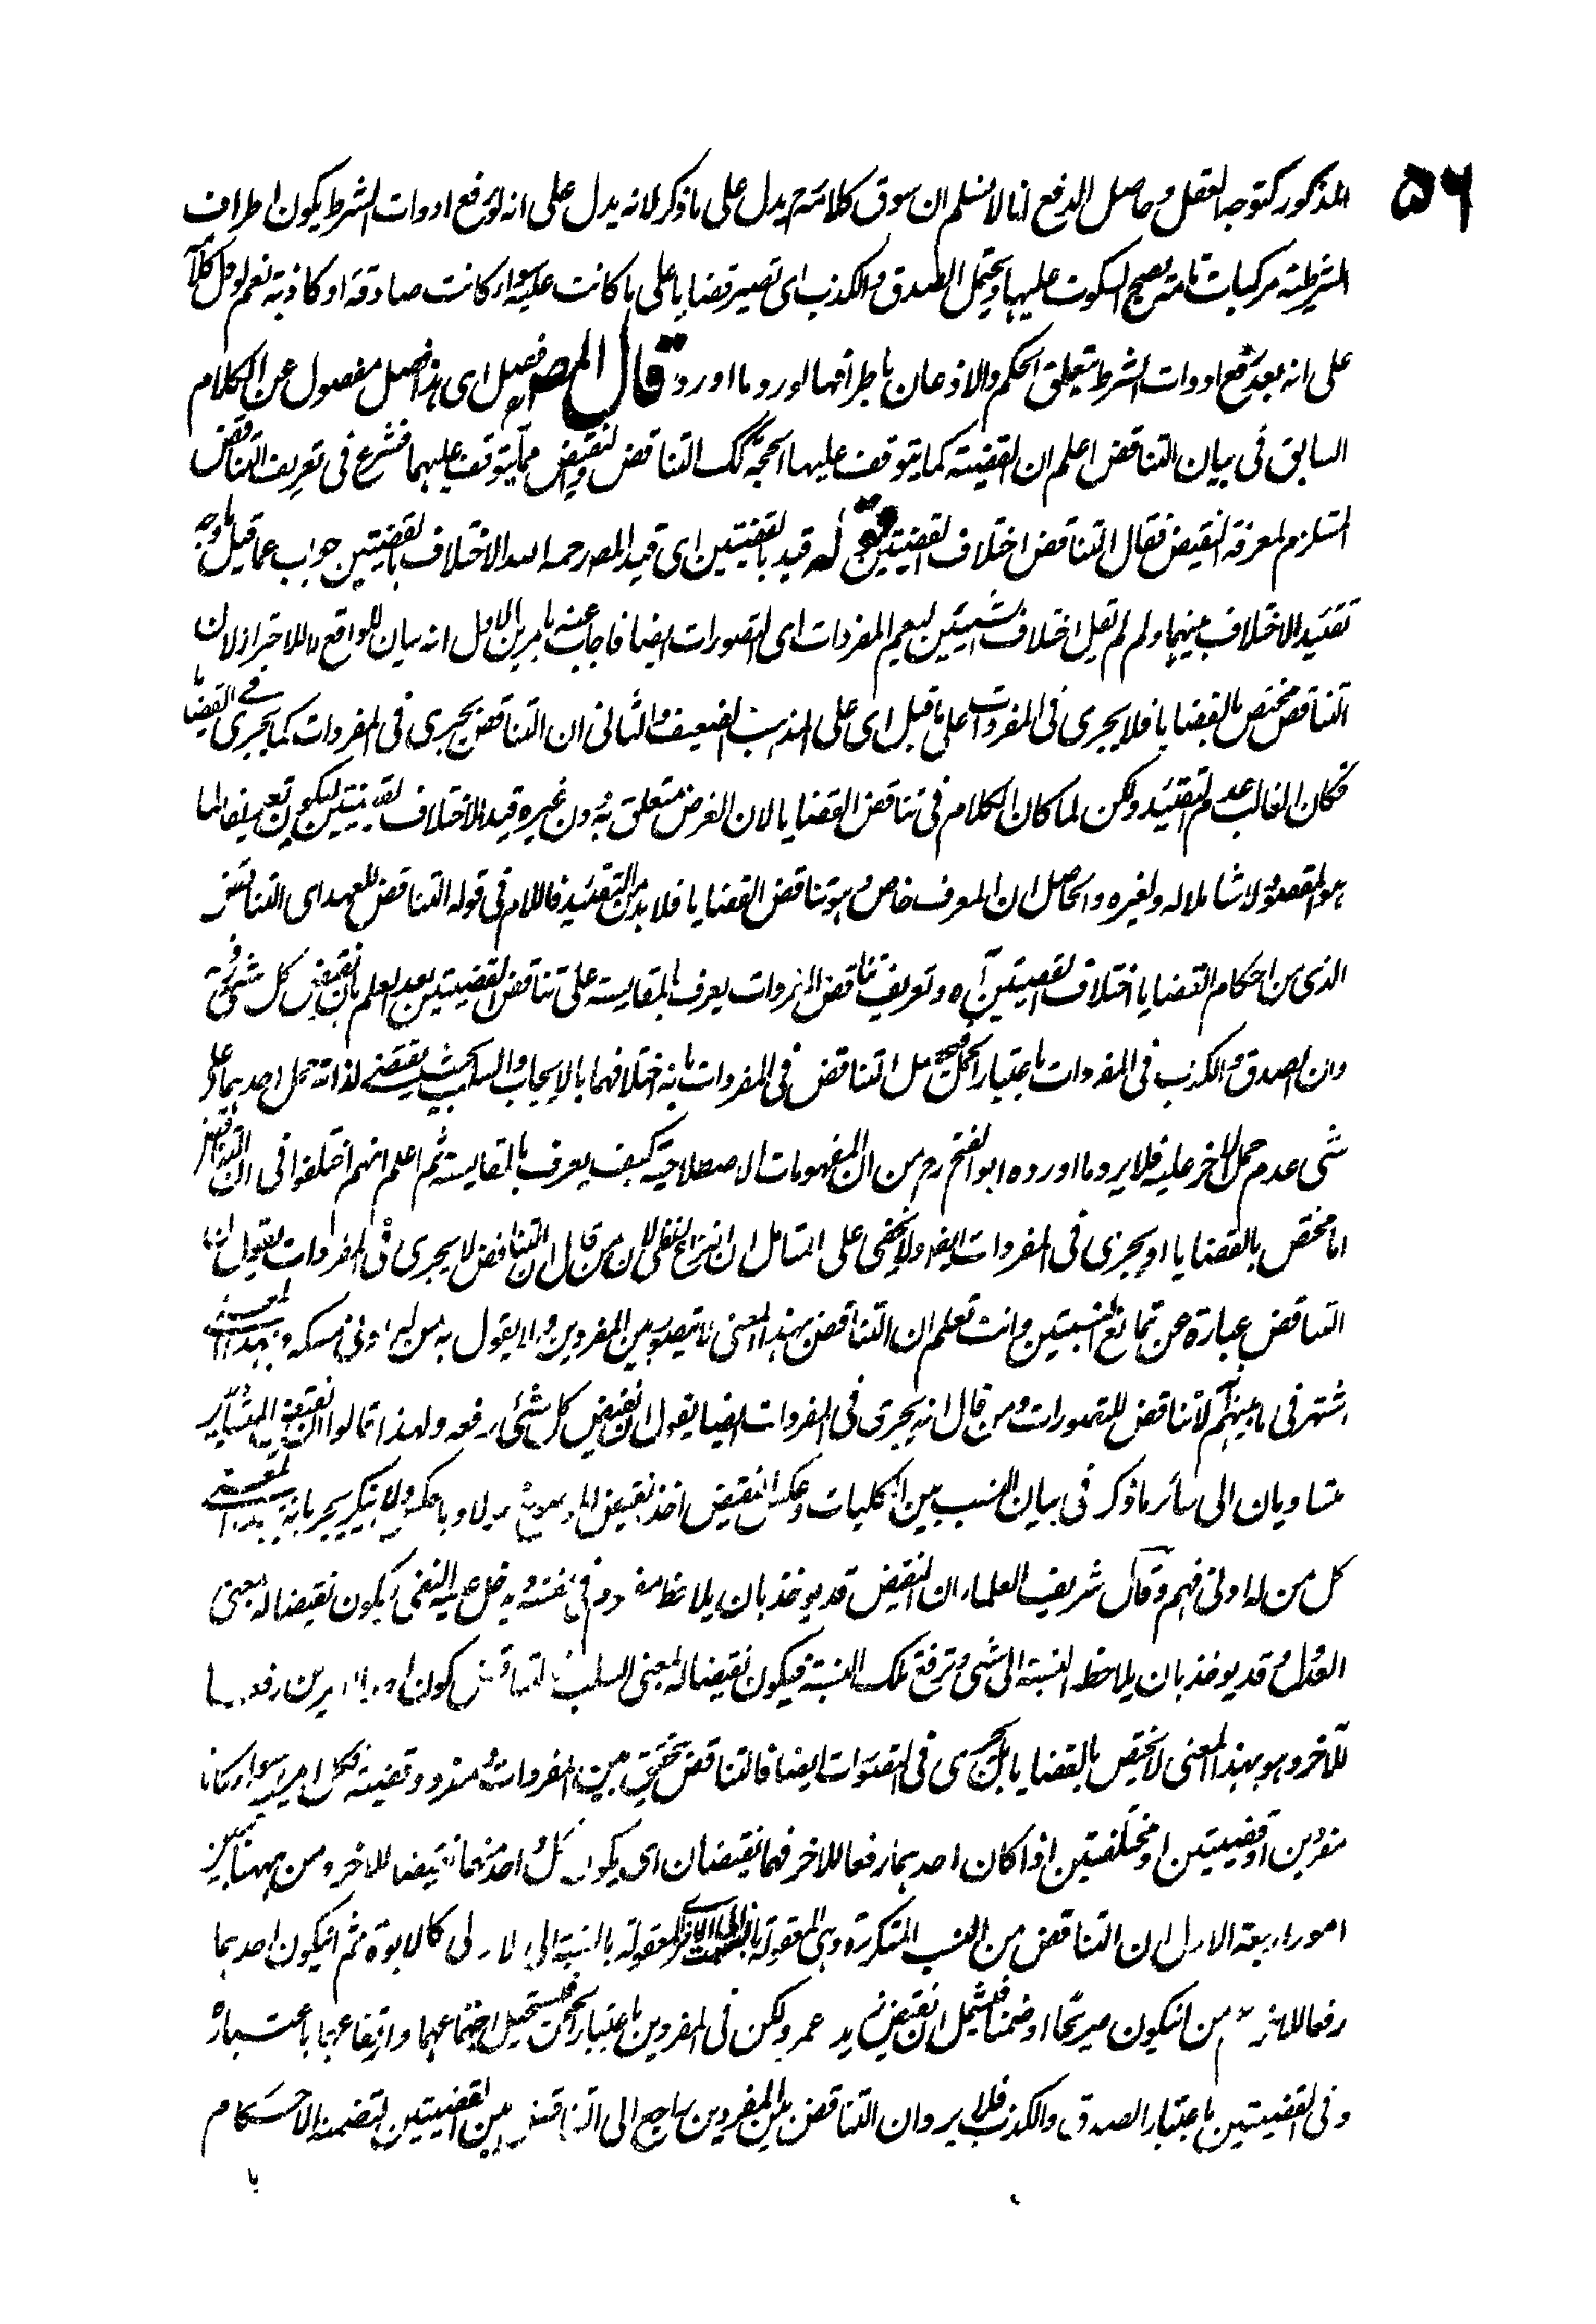 ٥٦
المذكور كتوجه العقل وحاصل الدفع انا لا نسلم ان سوق كلامه تم يدل على ما ذكر لانه يدل على انه لو رفع ادوات الشرط يكون اطراف
الشرطية مركبات تامة يصح السكوت عليها ويحتمل الصدق والكذب اى تصير قضايا على ما كانت عليه سواء كانت صادقة او كاذبة نعم لو دل كلامه
على انه بعد رفع ادوات الشرط يتعلق الحكم والاذعان باطرافها لورد ما اورد قال المص فصل اى هذا فصل مفصول عن الكلام
السابق فى بيان التناقض اعلم ان القضية كما يتوقف عليها الحجة كك التناقض والنقيض مما يتوقف عليهما فشرع فى تعريف التناقض
المستلزم لمعرفة النقيض فقال التناقض اختلاف القضيتين قوله قيد بالقضيتين اى قيد المصر رحمه الله الاختلاف بالقضيتين جواب عما قيل ما وجه
تقئيد الاختلاف بينهما ولم لم يقل اختلاف الشيئين ليعم المفردات اى التصورات ايضا فاجاب عنه بامرين الاول انه بيان للواقع لا للاحتراز لان
التناقض مختص بالقضايا فلا يجرى فى المفردات على ما قيل اى على المذهب الضعيف والثانى ان التناقض يجرى فى المفردات كما يجرى فى القضايا
فكان الغالب عدم التقئيد ولكن لما كان الكلام فى تناقض القضايا لان الغرض متعلق به دون غيره قيد الاختلاف بقضيتين ليكون تعريفا لما
هو المقصود لا شاملا له ولغيره والحاصل ان المعرف خاص وهو تناقض القضايا فلا بد من التقئيد فاللام فى قوله التناقض للعهد اى التناقض
الذى من احكام القضايا اختلاف القضيتين آه وتعريف تناقض المفردات يعرف بالمقايسة على تناقض القضيتين بعد العلم بان نقيض كل شئ رفعه
وان الصدق والكذب فى المفردات باعتبار الحمل فيحصل التناقض فى المفردات بانه اختلافهما بالايجاب والسلب بحيث يقتضى لذاته حمل احدهما على
شى عدم حمل الاخر عليه فلا يرد ما اورده ابو الفتح رح من ان المفهومات الاصطلاحية كيف يعرف بالمقايسة ثم اعلم انهم اختلفوا فى ان التناقض
اما مختص بالقضايا او يجرى فى المفردات ايضا ولا يخفى على المتامل ان النزاع لفظى لان من قال ان التناقض لا يجرى فى المفردات يقول ان
التناقض عبارة عن تمانع النسبتين وانت تعلم ان التناقض بهذا المعنى لا يتصور بين المفردين ولا يقول به من له ادنى مسكة وبهذا المعنى
اشتهر فى ما بينهم لا تناقض للتصورات ومن قال انه يجرى فى المفردات ايضا يقول ان نقيض كل شئ رفعه ولهذا قالوا ان نقيض المتساويين
متساويان الى سائر ما ذكر فى بيان النسب بين الكليات وعكس النقيض اخذ نقيض الموضوع محمولا وبالعكس ولا ينكر جريانه بهذا المعنى
كل من له ادنى فهم وقال شريف العلماء ان النقيض قد يوخذ بان يلاحظ مفهوم فى نفسه ويدخل عليه النفى فيكون نقيضا له بمعنى
العدول وقد يوخذ بان يلاحظ النسبة الى شئ وترفع تلك النسبة فيكون نقيضا له بمعنى السلب فالتناقض كون احد الامرين رفعا
للآخر وهو بهذا المعنى لا يختص بالقضايا بل يجرى فى التصورات ايضا فالتناقض يتحقق بين المفردات ومفرد وقضية فكل امرين سواء كانا
مفردين او قضيتين او مختلفتين اذا كان احدهما رفعا للاخر فهما نقيضان اى يكون كل واحد منهما نقيضا للاخر ومن ههنا تبين
امور اربعة الاول ان التناقض من النسب المتكررة وهى المعقولة بالنسبة الى الاخر المعقولة بالنسبة الى الاولى كالابوة ثم ان يكون احدهما
رفعا للاخر اعم من ان يكون صريحا او ضمنا فيشمل ان نقيض زيد عمر ولكن فى المفردين باعتبار الحمل فيستحيل اجتماعهما وارتفاعهما باعتباره
وفى القضيتين باعتبار الصدق والكذب فلا يرد ان التناقض بين المفردين راجع الى التناقض بين القضيتين لتضمنه الاحكام